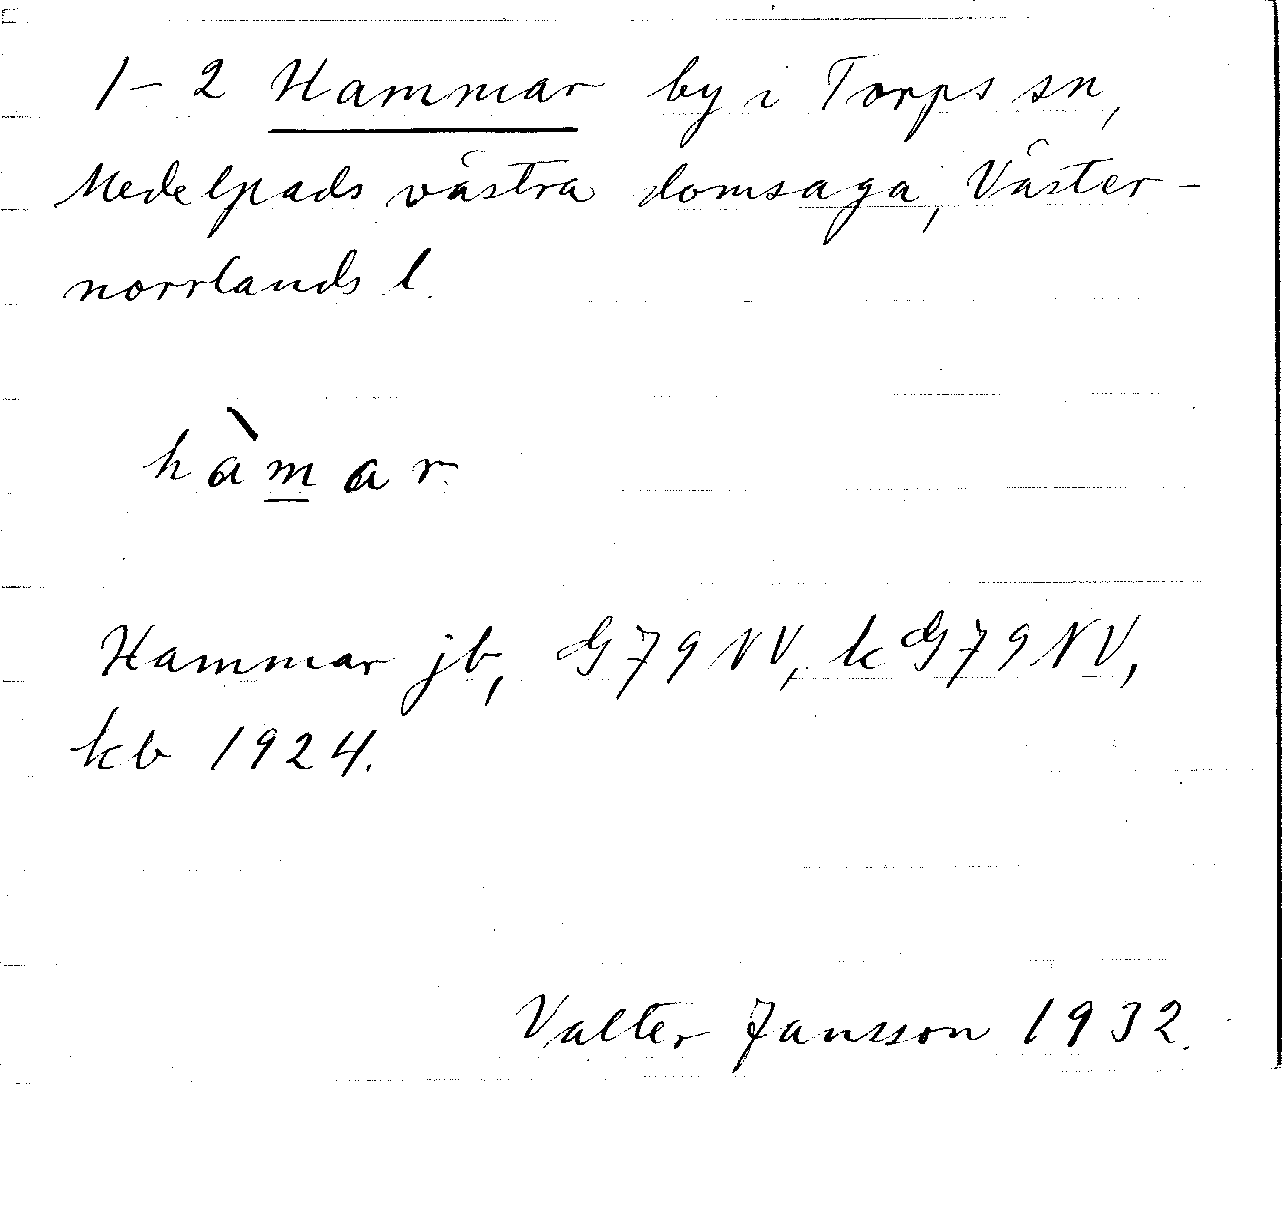 1-2 Hammar by i Torps sn,
Medelpads västra domsaga, Väster-
norrlands l.
hàmar
Hammar jb, G79NV, kG79NV,
kb 1924.
Valter Jansson 1932.